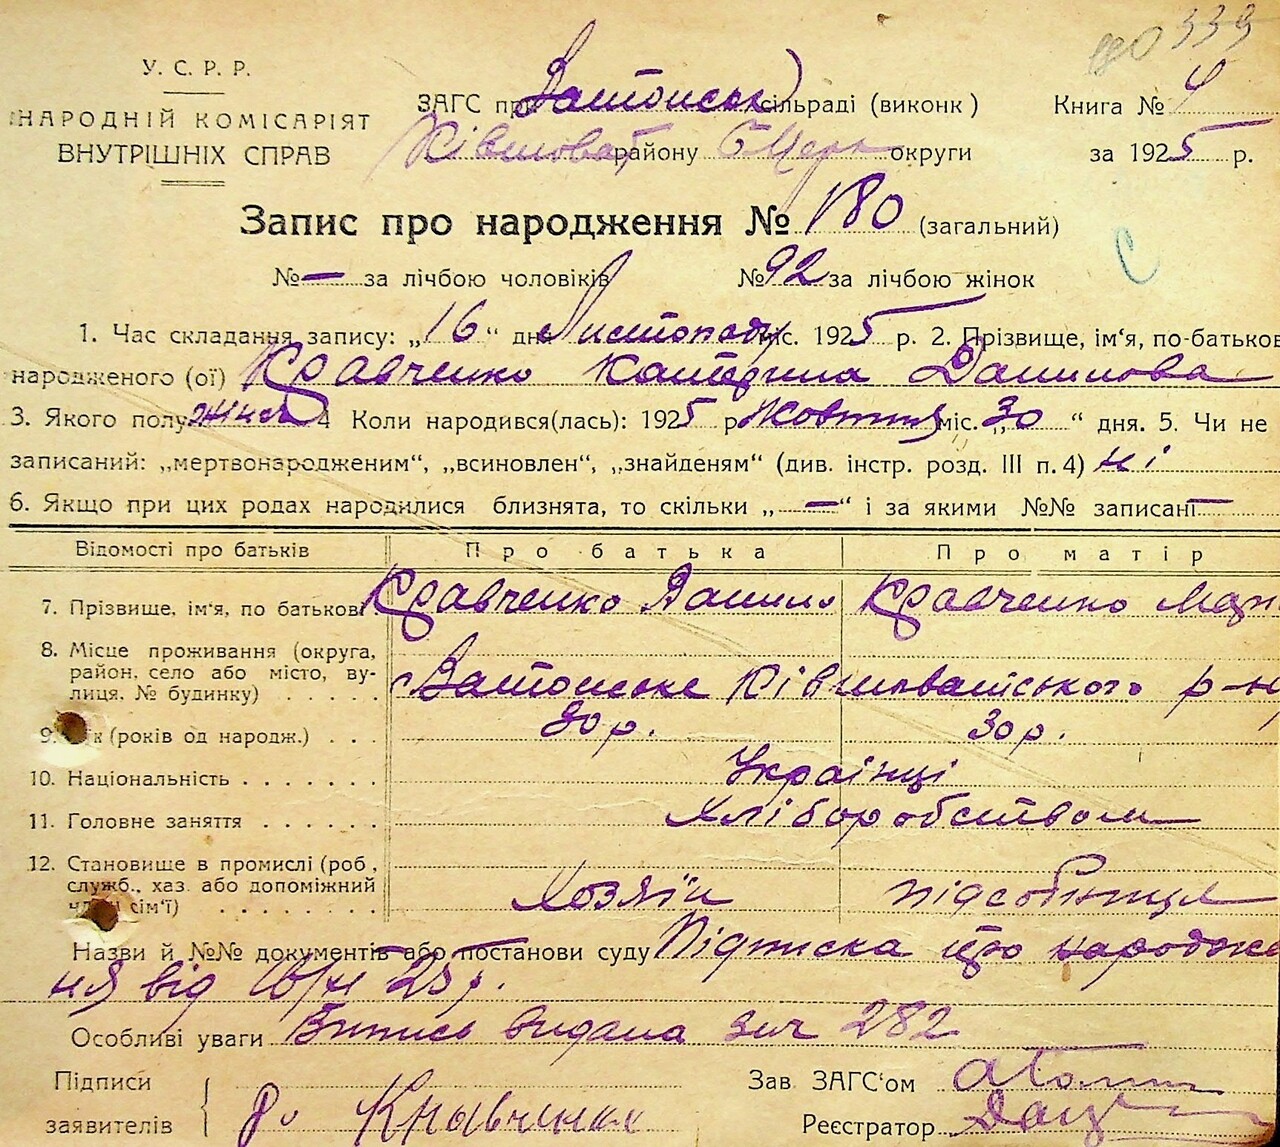 339
У. С. Р. Р.
НАРОДНІЙ КОМІСАРІЯТ
ВНУТРІШНІХ СПРАВ
ЗАГС при Затонськ сільраді (виконк) Книга № 4
Ківшоват району Б Церк округи за 1925 р.
Запис про народження № 180 (загальний)
№ — за лічбою чоловіків № 92 за лічбою жінок
1. Час складання запису: „16“ дня Листопаду міс. 1925 р. 2. Прізвище, ім‘я, по-батькові
народженого (ої) Кравченко Катерина Данилова
3. Якого полу жіноч 4 Коли народився(лась): 1925 р Жовтня міс. „30“ дня. 5. Чи не
записаний: „мертвонародженим“, „всиновлен“, „знайденям“ (див. інстр. розд. III п. 4) ні
6. Якщо при цих родах народилися близнята, то скільки „—“ і за якими №№ записані —
Відомості про батьків Про батька Про матір
7. Прізвище, ім‘я, по батькові Кравченко Данило Кравченко
8. Місце проживання (округа,
район, село або місто, ву-
лиця. № будинку) с. Затонське Ківшоватського р-ну
9. (років од народж.) 30 р. 30 р.
10. Національність Українці
11. Головне заняття Хліборобством
12. Становище в промислі (роб,
служб., хаз. або допоміжний
член сім‘ї) Хозяїн підсобниця
Назви й №№ документів або постанови суду Підписка про народжен
ня від 16/XI 25 р.
Особливі уваги Витись видана за № 282
Підписи
заявителів Кравченко
Зав ЗАГС‘ом
Реєстратор